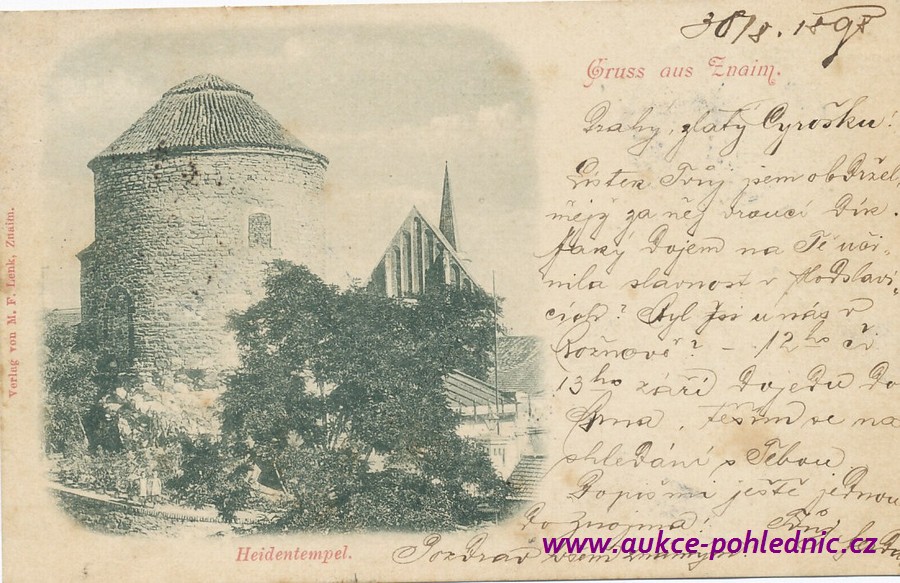 30/8. 1898
Gruss aus Znaim.
Drahý, zlatý Cyrošku!
Lístek Tvůj jsem obdržel,
měj za něj vroucí dík.
Jaký dojem na Tě uči-
nila slavnost v Hodslavi-
cích? Byl jsi u nás v
Rožnově? - 12ho či
13ho září dojedu do
Brna, těším se na
shledání s Tebou.
Dopiš mi ještě jednou
do Znojma! Tvůj
Pozdrav všem známým
Heidentempel.
Verlag von M. F. Lenk, Znaim.
www.aukce-pohlednic.cz